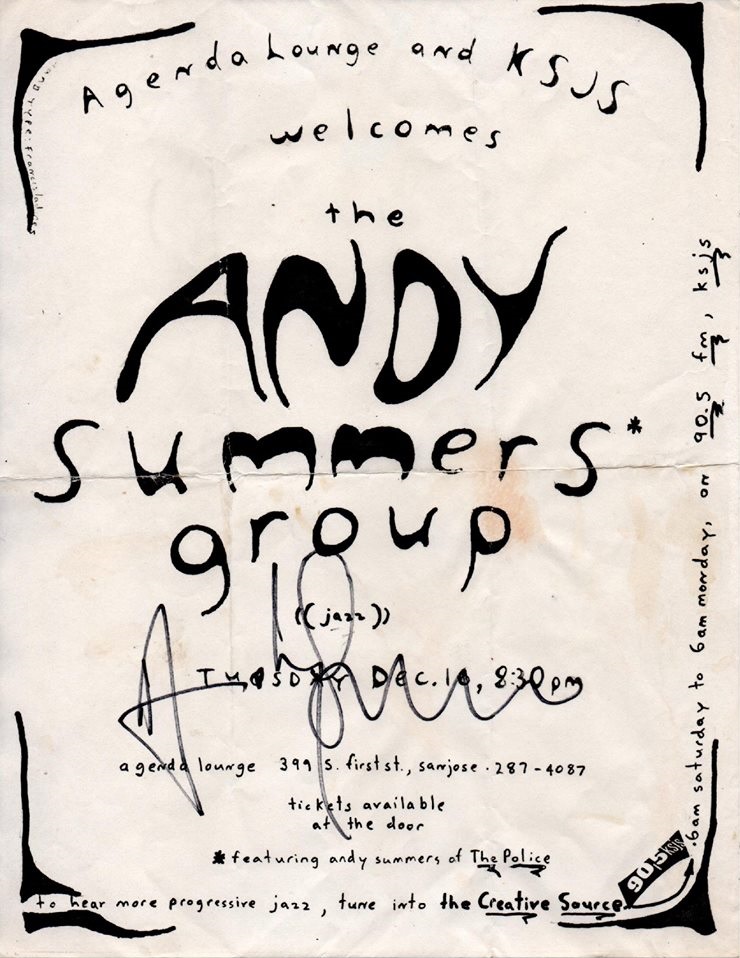 Agenda Lounge and KSJS
welcomes
the
ANDY
summers*
group
((jazz))
Tuesday Dec. 10, 8:30pm
agenda lounge 399 S. first st., sanjose · 287-4087
tickets available
at the door
*featuring andy summers of The Police
to hear more progressive jazz, tune into the Creative Source...
90.5 KSJS
.6am saturday to 6am monday, on 90.5 fm, ksjs